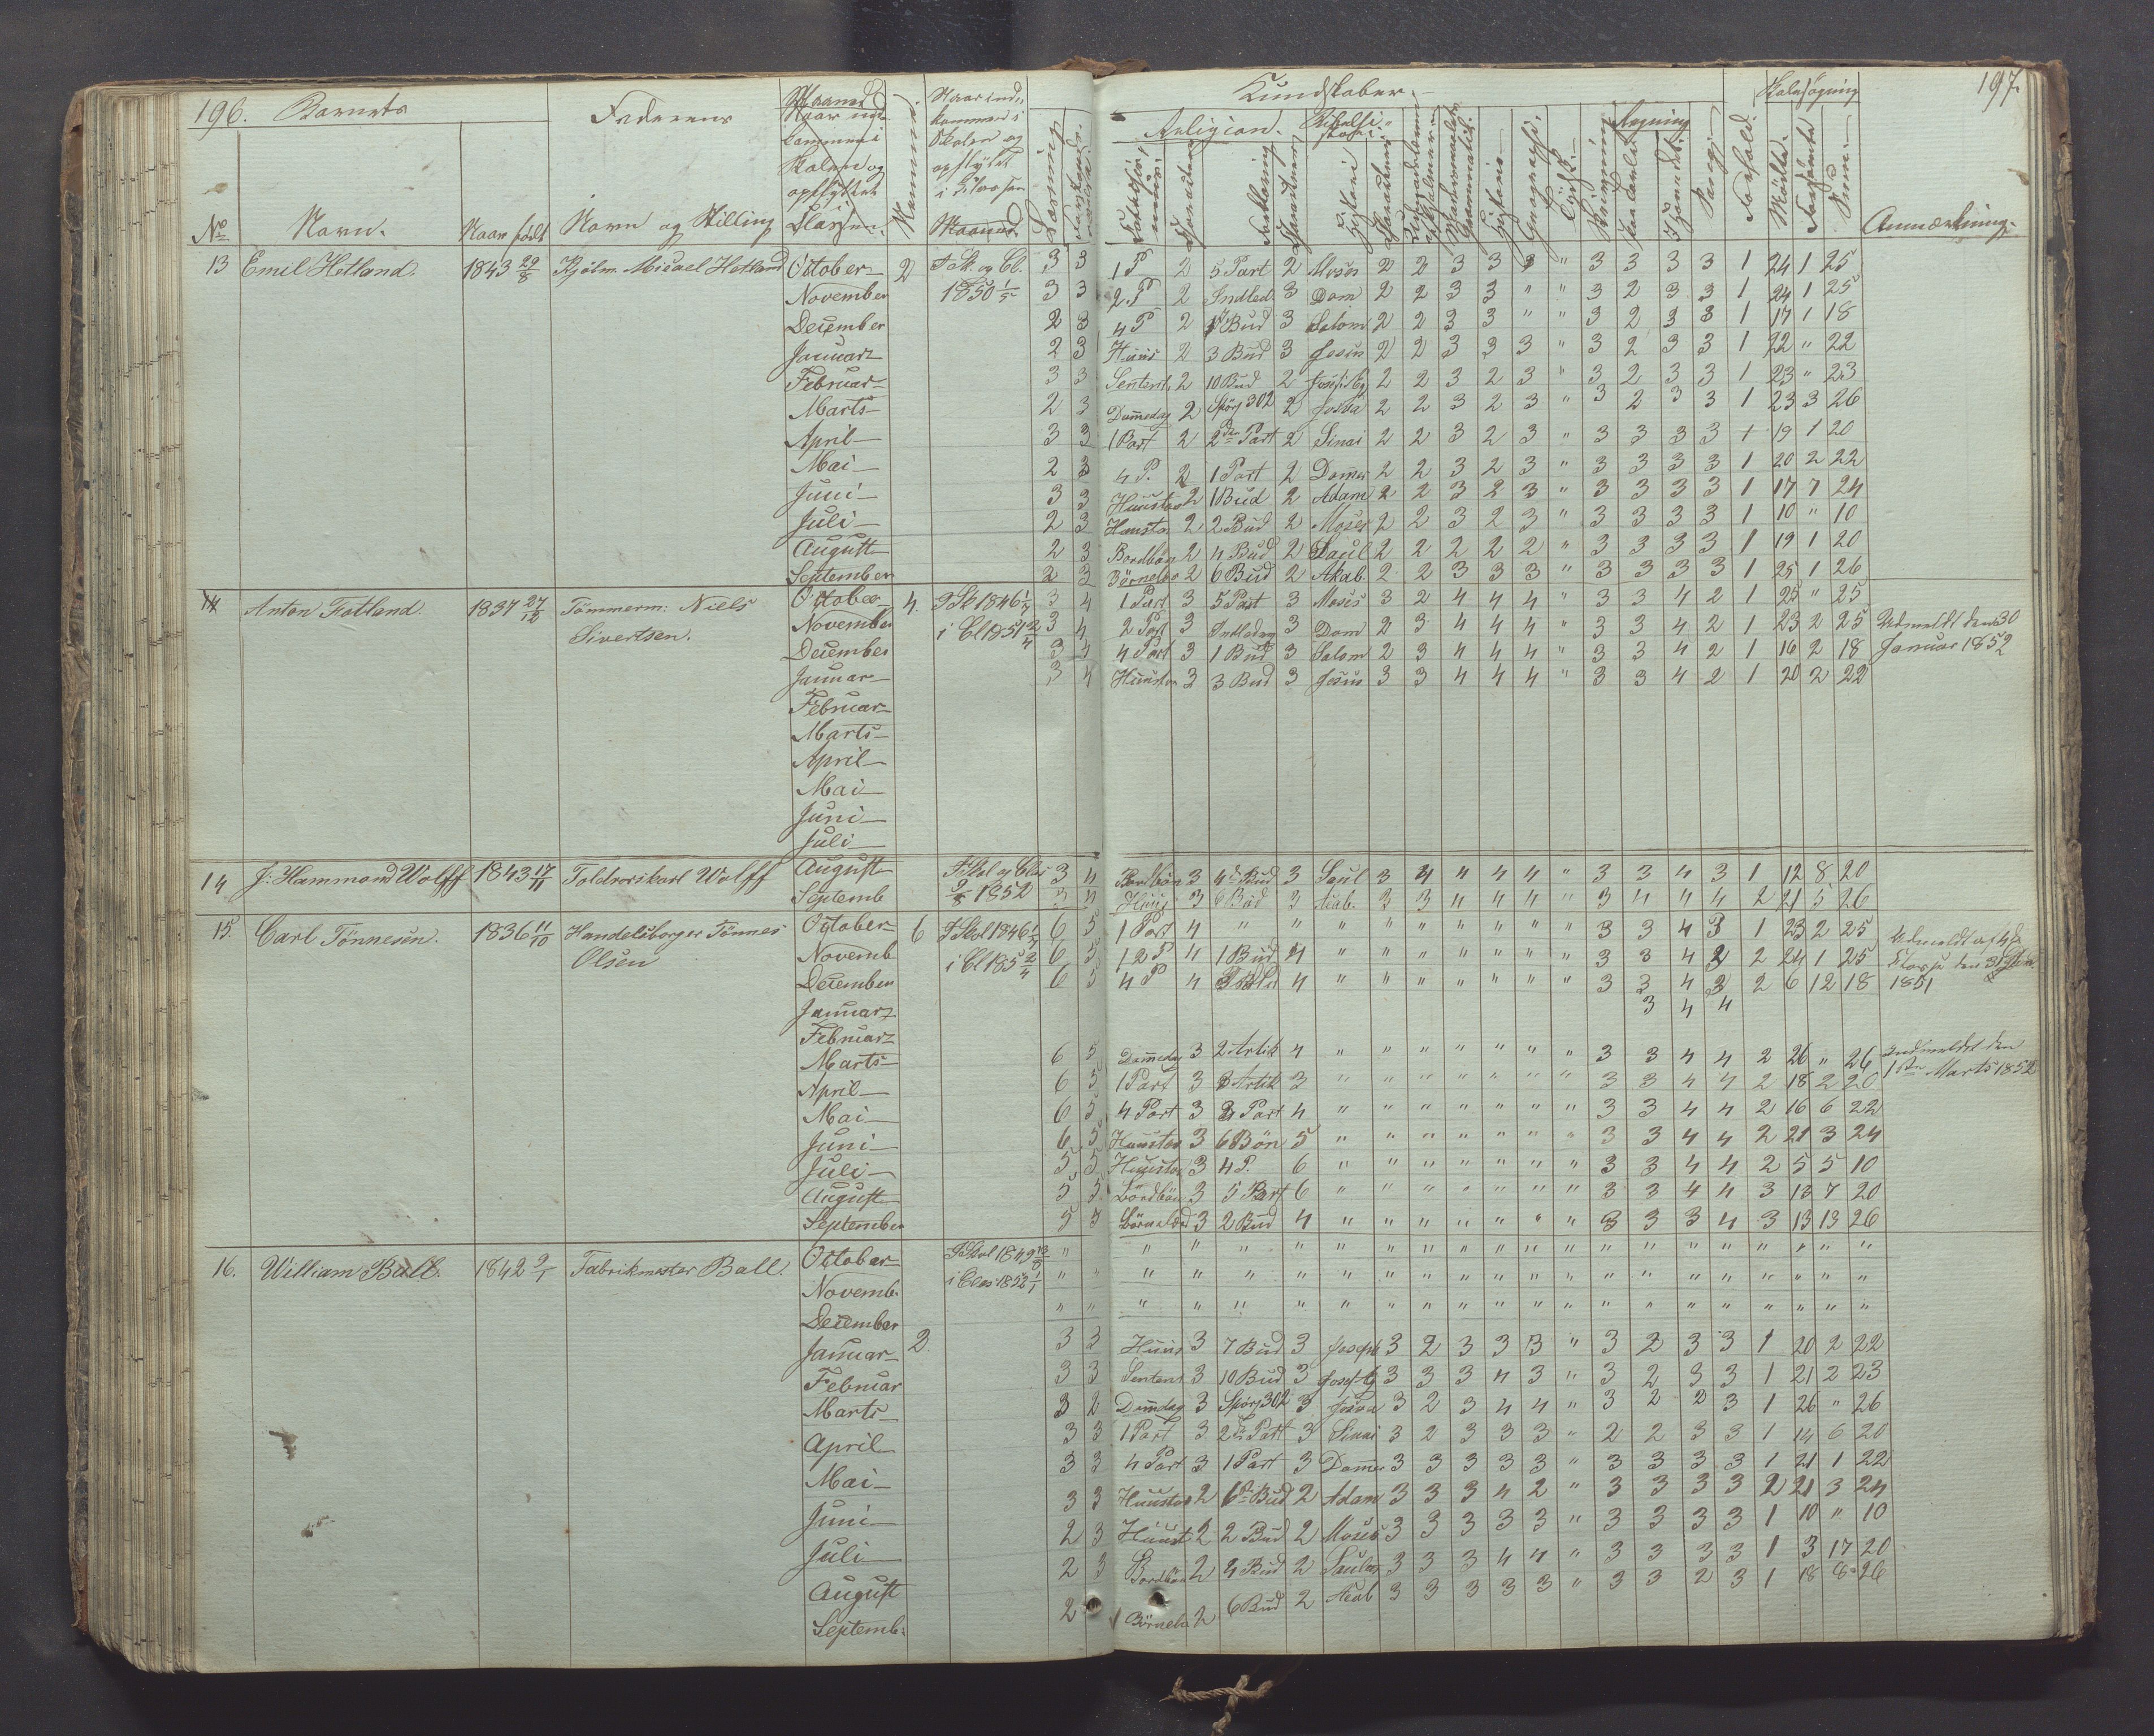 196. Barnets Faderens Maaned Kundskaber. Skolesøgning 197.
Religion. Bibelhistorie Regning
No Navn. Naar født Navn og Stilling Læsning Geografi Historie Skrivning Sang Forhold. Mödte Forsömte Sum Anmærkning.
13 Emil Hetland. 1843 29/8 Hjelm. Micael Hetland October 2 I Sk. og Cl. 3 3 1 P 2 5 Part 2 Moses 2 2 3 3 3 " 3 3 3 3 1 24 1 25
November 1850 1/5 3 3 2 P 2 Indled. 3 Dom 2 2 3 3 " " 3 2 3 3 1 24 1 25
December 2 3 4 P 2 1 Bud 3 Salom 2 2 3 3 " " 3 2 3 3 1 17 1 18
Januar 2 3 Huus 2 3 Bud 3 Jesus 2 2 3 3 3 " 3 2 3 3 1 22 " 22
Februar 3 3 Sentent. 2 10 Bud 2 Josef i Eg 2 2 3 2 3 " 3 2 3 3 1 23 " 23
Marts 2 3 Dommedag 2 Spörg 302 2 Josva 2 2 3 2 3 " 3 2 3 3 1 23 3 26
April 3 3 1 Part 2 2den Part 2 Sinai 2 2 3 2 3 " 3 3 3 3 1 19 1 20
Mai 2 3 4 P. 2 1 Part 2 Domer 2 2 3 2 3 " 3 3 3 3 1 20 2 22
Juni 3 3 Huustav 2 1 Bud 2 Adam 2 2 3 2 3 " 3 3 3 3 1 17 7 24
Juli 2 3 Huusta 2 2 Bud 2 Moses 2 2 3 2 3 " 3 3 3 3 1 10 " 10
August 2 3 Bordbön 2 4 Bud 2 Saul 2 2 2 2 2 " 3 3 3 3 1 19 1 20
September 2 3 Börnelær 2 6 Bud 2 Akab. 2 2 3 3 3 " 3 3 3 3 1 25 1 26
14 Anton Fotland. 1837 27/12 Tömmerm: Niels October 4. I Sk 1846 1/7 3 4 1 Part 3 5 Part 3 Moses 3 2 4 4 4 " 3 3 4 2 1 25 " 25
Sivertsen. November i Cl 1851 2/4 3 4 2 Part 3 Indledng 3 Dom 2 3 4 4 4 " 3 3 4 2 1 23 2 25 Udmeldt den 30
December 3 4 4 Part 3 1 Bud 3 Salom 2 3 4 4 4 " 3 3 4 2 1 16 2 18 Januar 1852
Januar 3 4 Huustav 3 3 Bud 3 Jesus 3 3 4 4 4 " 3 3 4 2 1 20 2 22
Februar
Marts
April
Mai
Juni
Juli
14 J: Hammond Wolff 1843 17/11 Toldroerkarl Wolff August I Skol og Clas 3 4 Bordbön 3 4de Bud 3 Saul 3 4 4 4 4 " 3 3 4 3 1 12 8 20
Septemb 2/8 1852 3 4 Huus 3 6 Bud 3 Acab. 3 3 4 4 4 " 3 4 4 4 2 21 5 26
15. Carl Tönnesen. 1836 11/10 Handelsborger Tönnes October 6 I Skol 1846 1/7 6 5 1 Part 4 " " " " " " " " " 3 3 4 3 1 23 2 25
Olsen Novemb i Cl 185 2/4 6 5 1 2 P 4 1 Bud 4 " " " " " " " 3 3 4 3 2 24 1 25 Udmeldt af
December 6 5 4 P 4 4 " " " " " " " 3 3 4 3 2 6 12 18 1851
Januar 3 4 4
Februar
Marts 6 5 Dommedag 3 2 Artik 4 " " " " " " " 3 3 4 4 2 26 " 26 Indmeldt den
April 6 5 1 Part 3 3 Artik 3 " " " " " " " 3 3 4 4 2 18 2 20 1ste Marts 1852
Mai 6 5 4 Part 3 2 Part 4 " " " " " " " 3 3 4 4 2 16 6 22
Juni 6 5 Huustav 3 6 Bön 5 " " " " " " " 3 3 4 4 2 21 3 24
Juli 5 5 Huustav 3 4 P. 6 " " " " " " " 3 3 4 4 2 5 5 10
August 5 5 Bordbön 3 5 Part 6 " " " " " " " 3 3 4 4 3 13 7 20
September 5 5 Börnelærd 3 2 Bud 4 " " " " " " " 3 3 3 4 3 13 13 26
16. William Ball. 1842 9/1 Fabrikmester Ball. October I Skol 1849 13/8 " " " " " " " " " " " " " " " " " " " " " "
Novemb. i Clas 1852 1/1 " " " " " " " " " " " " " " " " " " " " " "
December " " " " " " " " " " " " " " " " " " " " " "
Januar 2. 3 3 Huus 3 7 Bud 3 Joseph 3 2 3 3 3 " 3 2 3 3 1 20 2 22
Februar 3 3 Sentent 3 10 Bud 3 Josef i Eg 3 3 3 4 3 " 3 2 3 3 1 21 2 23
Marts 3 2 Domdag 3 Spörg 302 3 Josva 3 2 3 4 4 " 3 2 2 3 1 26 " 26
April 3 3 1 Part 3 2den Part 3 Sinai 3 2 3 3 3 " 2 2 3 3 1 14 6 20
Mai 3 3 4 Part 3 1 Part 3 Domer 3 3 3 3 3 " 3 3 3 3 1 21 1 22
Juni 3 3 Huustav 2 1ste Bud 2 Adam 3 3 3 4 2 " 3 3 3 3 2 21 3 24
Juli 2 3 Huust 2 2 Bud 2 Moses 3 3 3 3 3 " 3 3 3 3 1 10 " 10
August 2 3 Bordbön 2 4 Bud 2 Saulus 3 3 3 4 4 " 3 3 3 3 1 3 17 20
Septemb: 2 Börnelæ 2 6 Bud 2 Acab 3 3 3 3 3 " 3 3 2 3 1 18 8 26